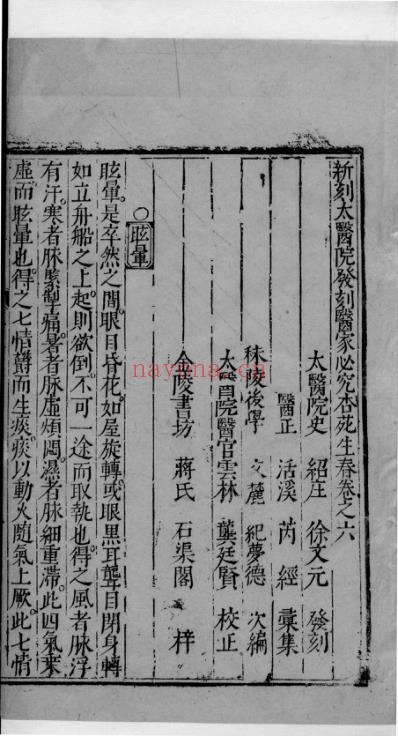 新刻太醫院發刻醫家必究杏苑生春卷之六
太醫院史 紹庄 徐文元 發刻
醫正 活溪 芮經 彙集
秣陵後學 文麓 紀夢德 次編
太醫院醫官雲林 龔廷賢 校正
金陵書坊 蔣氏 石渠閣 梓
○眩暈
眩暈是卒然之間眼目昏花如屋旋轉或眼黑耳聾目閉身轉
如立舟船之上起則欲倒不可一途而取執也得之風者脉浮
有汗寒者脉緊掣痛暑者脉虛煩悶濕者脉細重滯此四氣乘
虛而眩暈也得之七情鬱而生痰痰以動火隨氣上厥此七情
nayona.cn